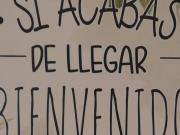 SI ACABAS
DE LLEGAR
BIENVENIDO